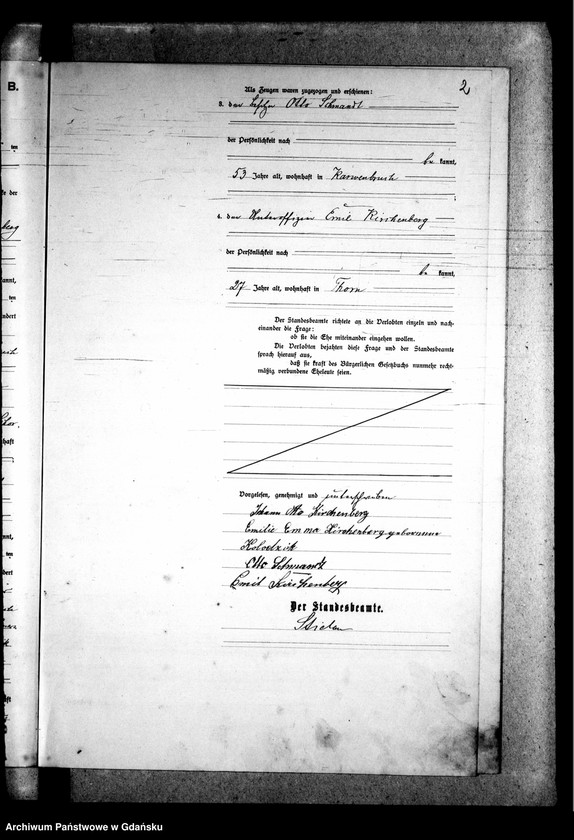 B.
2
Als Zeugen waren zugezogen und erschienen:
3. der Besitzer Otto Schmandt
der Persönlichkeit nach
be kannt,
53 Jahre alt, wohnhaft in Karwenbruch
;
4. der Unteroffizier Emil Kirschenberg
der Persönlichkeit nach
be kannt,
27 Jahre alt, wohnhaft in Thorn
Der Standesbeamte richtete an die Verlobten einzeln und nach-
einander die Frage:
ob sie die Ehe miteinander eingehen wollen.
Die Verlobten bejahten diese Frage und der Standesbeamte
sprach hierauf aus,
daß sie kraft des Bürgerlichen Gesetzbuchs nunmehr recht-
mäßig verbundene Eheleute seien.
Vorgelesen, genehmigt und unterschrieben
Johann Otto Kirschenberg
Emilie Emma Kirschenberg geborene
Otto Schmandt
Emil Kirschenberg
Der Standesbeamte.
Archiwum Państwowe w Gdańsku